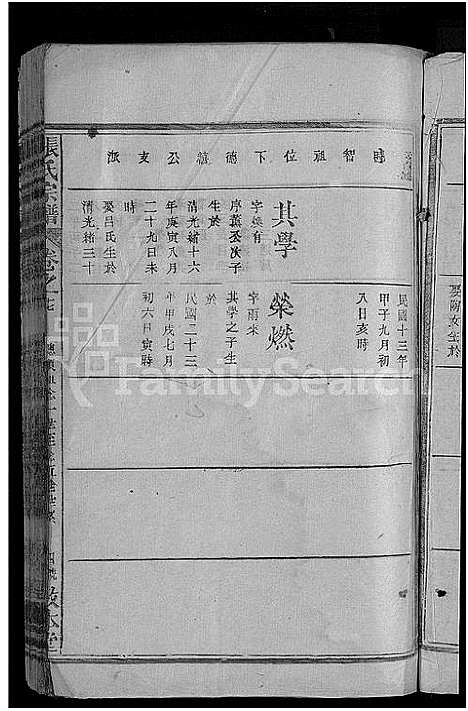 時智祖位下德縯公支派
其學
字煥有
序黃丞次子
生於
清光緒十六
年庚寅八月
二十九日未
時
娶呂氏生於
清光緒三十
民國十三年
甲子九月初
八日亥時
榮燃
字雨來
其學之子生
於
民國二十三
年甲戌七月
初六日寅時
張氏宗譜
卷之
敦本堂
娶陶女生於
FamilySearch